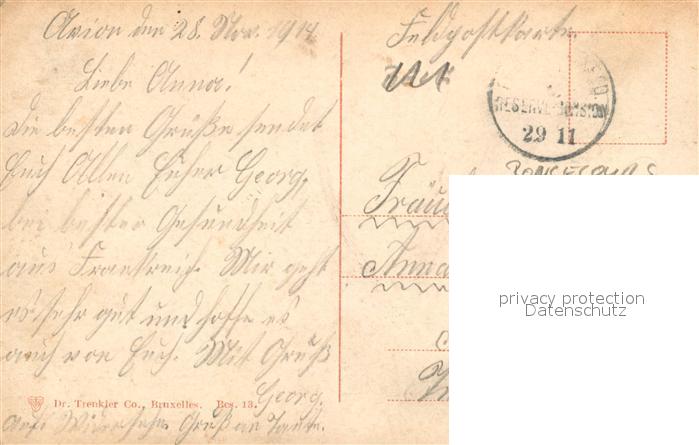 Arion den 28. Nov. 1914
Liebe Anna!
Die besten Grüße sendet
Euch Allen Euher Georg.
bei bester Gesundheit
aus Frankreich. Mir geht
es sehr gut und hoffe es
auch von Euch. Mit Gruß
Georg.
auf Widersehn Gruß an Tante.
Dr. Trenkler Co., Bruxelles. Bes. 13.
Feldpostkarte
RESERVE-DIVISION
29 11
Fräu
Anna
privacy protection
Datenschutz